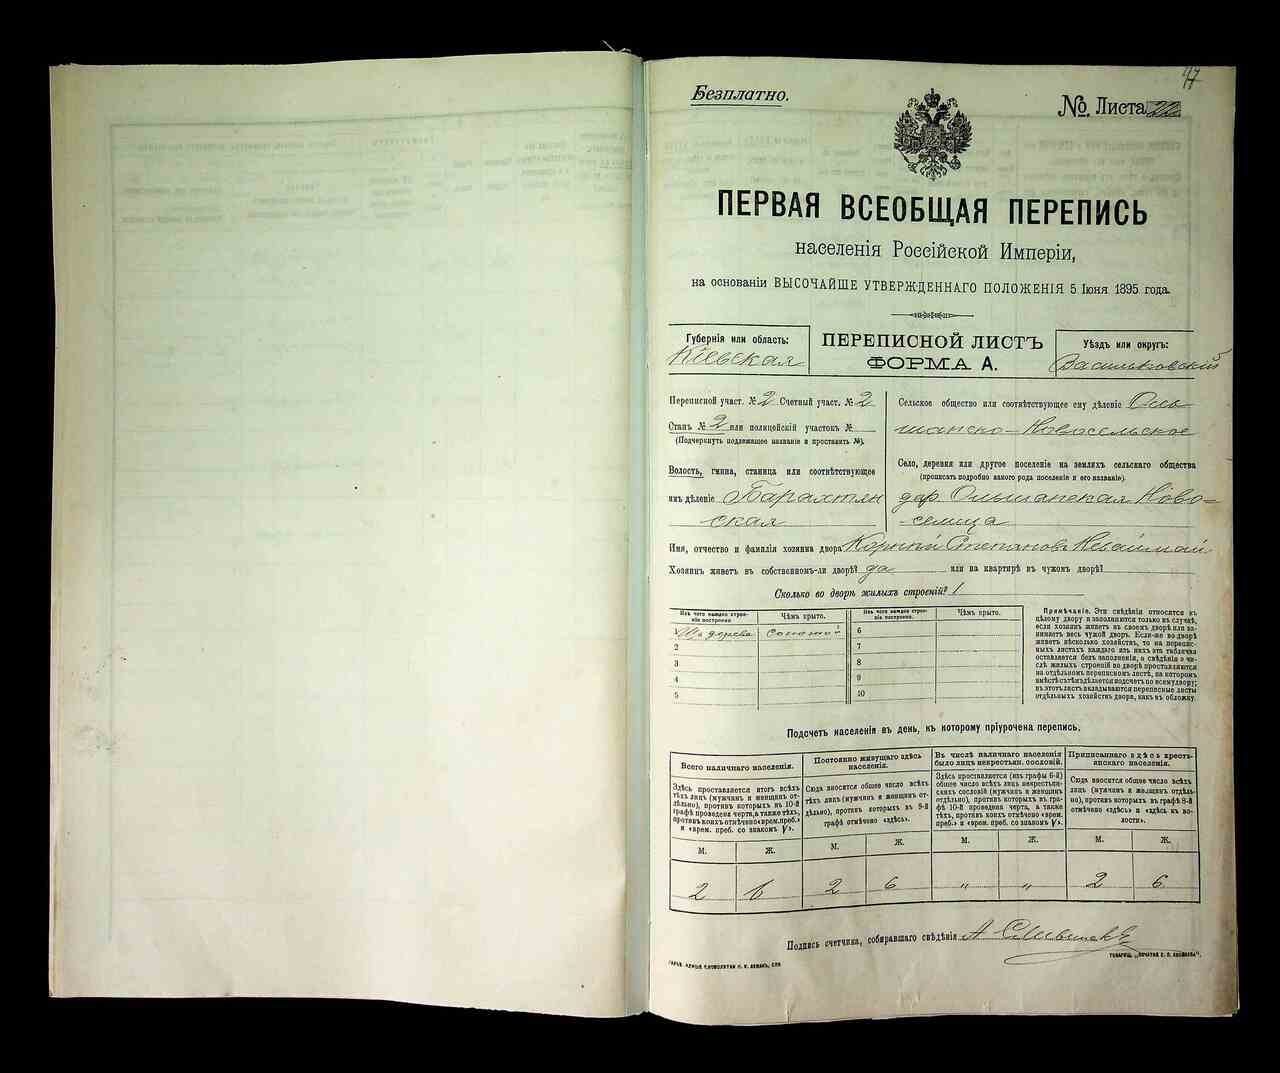 47
Безплатно.
№. Листа 22
ПЕРВАЯ ВСЕОБЩАЯ ПЕРЕПИСЬ
населенія Россійской Имперіи,
на основаніи ВЫСОЧАЙШЕ УТВЕРЖДЕННАГО ПОЛОЖЕНІЯ 5 Іюня 1895 года.
Губернія или область:
Кіевская
ПЕРЕПИСНОЙ ЛИСТЪ
ФОРМА А.
Уѣздъ или округъ:
Васильковскій
Переписной участ. № 2 Счетный участ. № 2
Станъ № 2 или полицейскій участокъ №
(Подчеркнуть подлежащее названіе и проставить №).
Волость, гмина, станица или соотвѣтствующее
имъ дѣленіе Барахтян
ская
Сельское общество или соотвѣтствующее ему дѣленіе Оль
шанско-Новосельское
Село, деревня или другое поселеніе на земляхъ сельскаго общества
(прописать подробно какого рода поселеніе и его названіе).
дер. Ольшанская Ново-
-селица
Имя, отчество и фамилія хозяина двора Корній Степановъ
Хозяинъ живетъ въ собственномъ-ли дворѣ? да или на квартирѣ въ чужомъ дворѣ?
Сколько во дворѣ жилыхъ строеній? 1
Изъ чего каждое строе-
ніе построено
Чѣмъ крыто.
Изъ чего каждое строе-
ніе построено
Чѣмъ крыто.
дерева соломой 6
2 7
3 8
4 9
5 10
Примѣчаніе. Эти свѣдѣнія относятся къ
цѣлому двору и заполняются только въ случаѣ,
если хозяинъ живетъ въ своемъ дворѣ или за-
нимаетъ весь чужой дворъ. Если-же во дворѣ
живетъ нѣсколько хозяйствъ, то на перепис-
ныхъ листахъ каждаго изъ нихъ эта табличка
оставляется безъ заполненія, а свѣдѣнія о чи-
слѣ жилыхъ строеній во дворѣ проставляются
на отдѣльномъ переписномъ листѣ, на которомъ
вмѣстѣ съ тѣмъ дѣлается подсчетъ по всему двору;
въ этотъ листъ вкладываются переписные листы
отдѣльныхъ хозяйствъ двора, какъ въ обложку.
Подсчетъ населенія въ день, къ которому пріурочена перепись.
Всего наличнаго населенія.
Здѣсь проставляется итогъ всѣхъ
тѣхъ лицъ (мужчинъ и женщинъ от-
дѣльно), противъ которыхъ въ 10-й
графѣ проведена черта, а также тѣхъ,
противъ коихъ отмѣчено «врем. преб.»
и «врем. преб. со знакомъ V».
Постоянно живущаго здѣсь
населенія.
Сюда вносится общее число всѣхъ
тѣхъ лицъ (мужчинъ и женщинъ от-
дѣльно), противъ которыхъ въ 9-й
графѣ отмѣчено «здѣсь».
Въ числѣ наличнаго населенія
было лицъ некрестьян. сословій.
Здѣсь проставляется (изъ графы 6-й)
общее число всѣхъ лицъ некрестьян-
скихъ сословій (мужчинъ и женщинъ
отдѣльно), противъ которыхъ въ гра-
фѣ 10-й проведена черта, а также
тѣхъ, противъ коихъ отмѣчено «врем.
преб.» и «врем. преб. со знакомъ V».
Приписаннаго здѣсь кресть-
янскаго населенія.
Сюда вносится общее число всѣхъ
лицъ (мужчинъ и женщинъ отдѣль-
но), противъ которыхъ въ графѣ 8-й
отмѣчено «здѣсь» и «здѣсь въ во-
лости».
М. Ж. М. Ж. М. Ж. М. Ж.
2 6 2 6 „ „ 2 6
Подпись счетчика, собиравшаго свѣдѣнія А